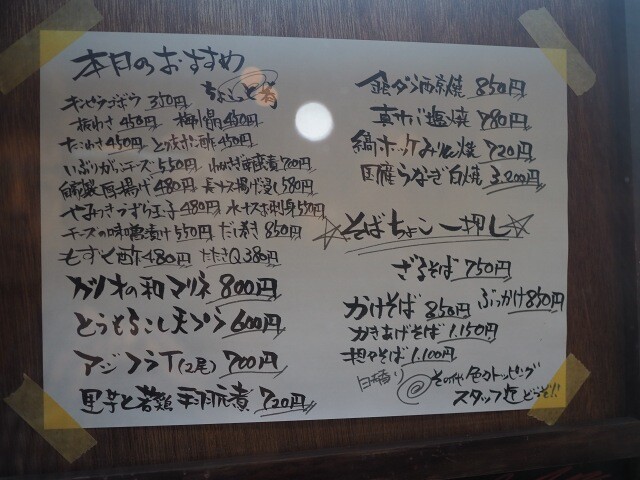 本日のおすすめ
ちょいと肴
キンピラゴボウ 350円
板わさ 450円 梅水晶 450円
たこわさ 450円 とりポン酢 450円
いぶりがっこチーズ 550円 700円
自家製厚揚げ 480円 長ナス揚げ浸し 580円
やみつきうずら玉子 480円 水ナスお刺身 550円
チーズの味噌漬け 550円 だし巻き 850円
もずく酢 480円 たたきQ 380円
カツオの和マリネ 800円
とうもろこし天ぷら 600円
アジフライ(2尾) 700円
里芋と若鶏 煮 720円
銀ダラ西京焼 850円
真サバ塩焼 780円
縞ホッケみりん焼 720円
国産うなぎ白焼 3,200円
☆そばちょこ一押し☆
ざるそば 750円
かけそば 850円 ぶっかけ 850円
かきあげそば 1,150円
担々そば 1,100円
日替り
その他 各トッピング
スタッフ迄どうぞ!!